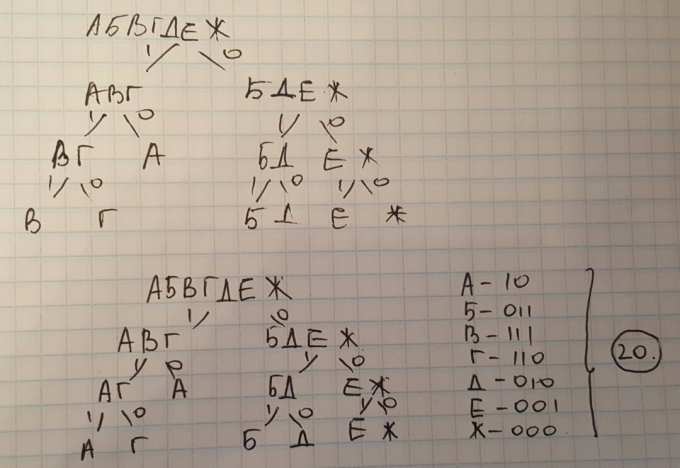 АБВГДЕЖ
1 0
АВГ БДЕЖ
1 0 1 0
ВГ А БД ЕЖ
1 0 1 0 1 0
В Г Б Д Е Ж
АБВГДЕЖ
1 0
АВГ БДЕЖ
1 0 1 0
АГ А БД ЕЖ
1 0 1 0 1 0
А Г Б Д Е Ж
А - 10
Б - 011
В - 111
Г - 110
Д - 010
Е - 001
Ж - 000
20.